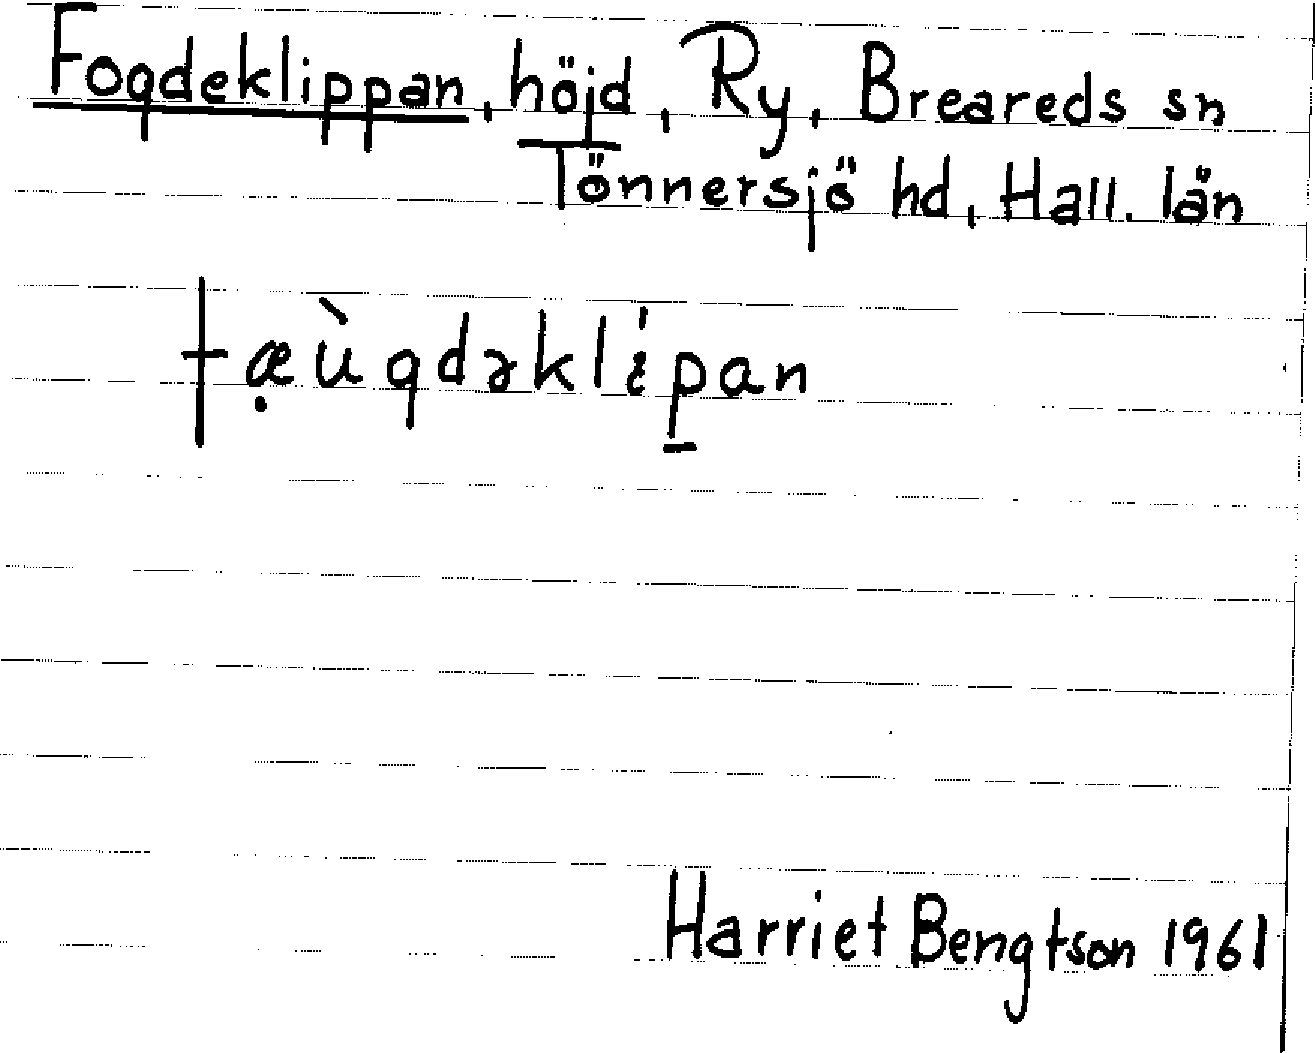 Fogdeklippan, höjd, Ry, Breareds sn
Tönnersjö hd, Hall. län
fæ̣ùgdəklipan
Harriet Bengtson 1961